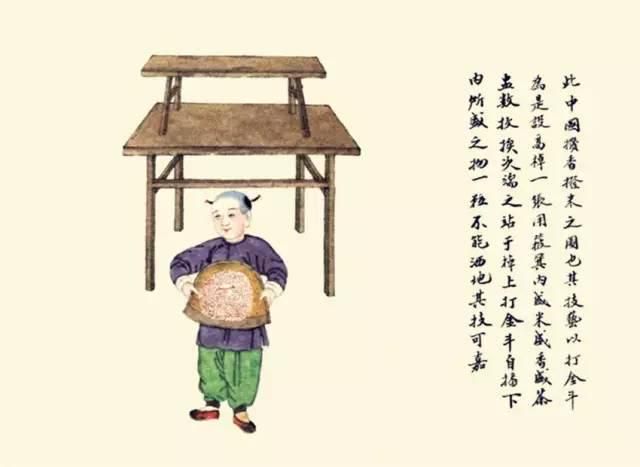 此中國香米之圖也其技藝以打金斗
為是設高棹一張用簸箕內盛米盛香盛茶
盅数挨次端之站于棹上打金斗自下
内所盛之物一粒不能洒地其技可嘉